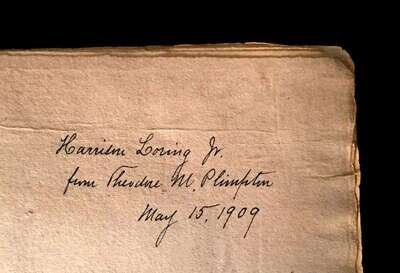 Harrison Loring Jr.
from Theodore M. Plimpton
May 15, 1909